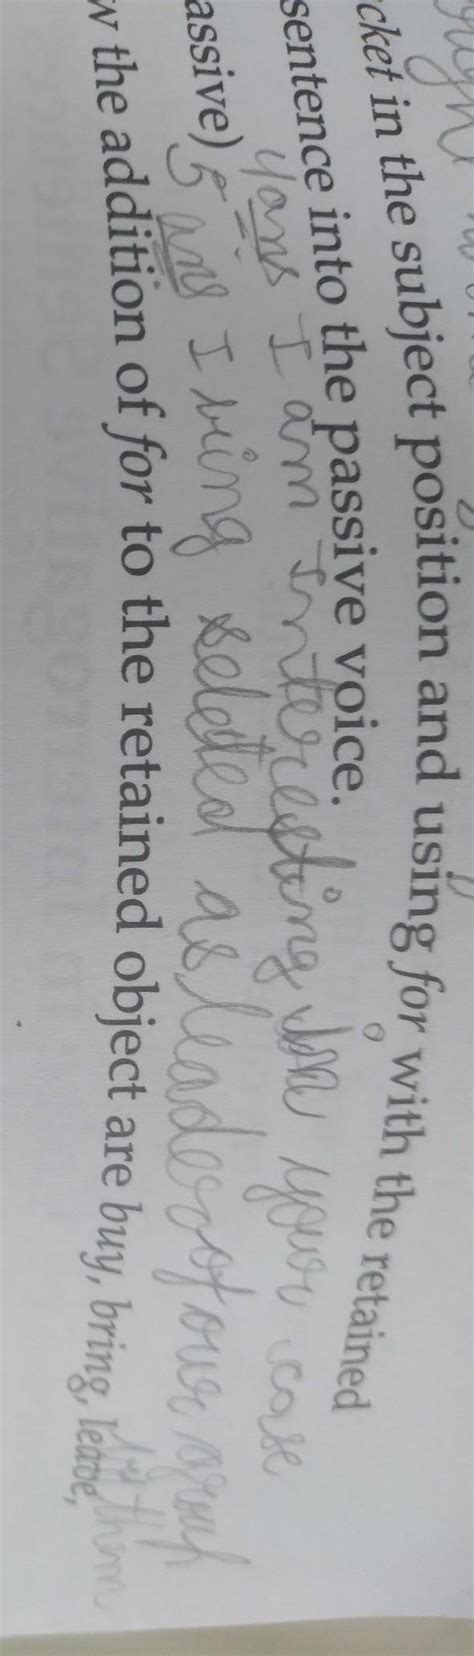 cket in the subject position and using for with the retained
sentence into the passive voice.
4 ans I am Interesting in your case
assive)
5 ans I being selected as leader of our group
by them
w the addition of for to the retained object are buy, bring, leave,